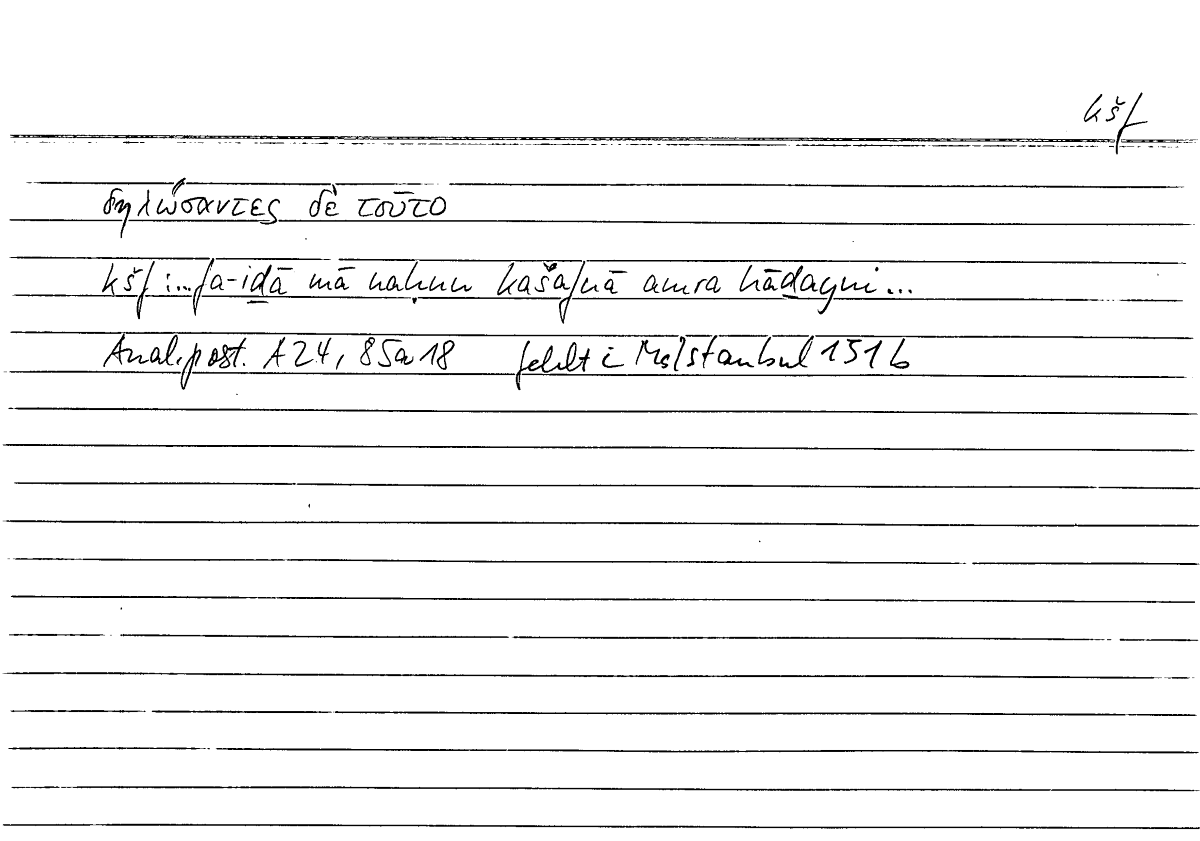 kšf
δηλώσαντες δὲ τοῦτο
kšf : ... fa-iḏā mā naḥnu kašafnā amra hāḏayni ...
Anal. post. A 24, 85a 18 fehlt i Ms Istanbul 1516